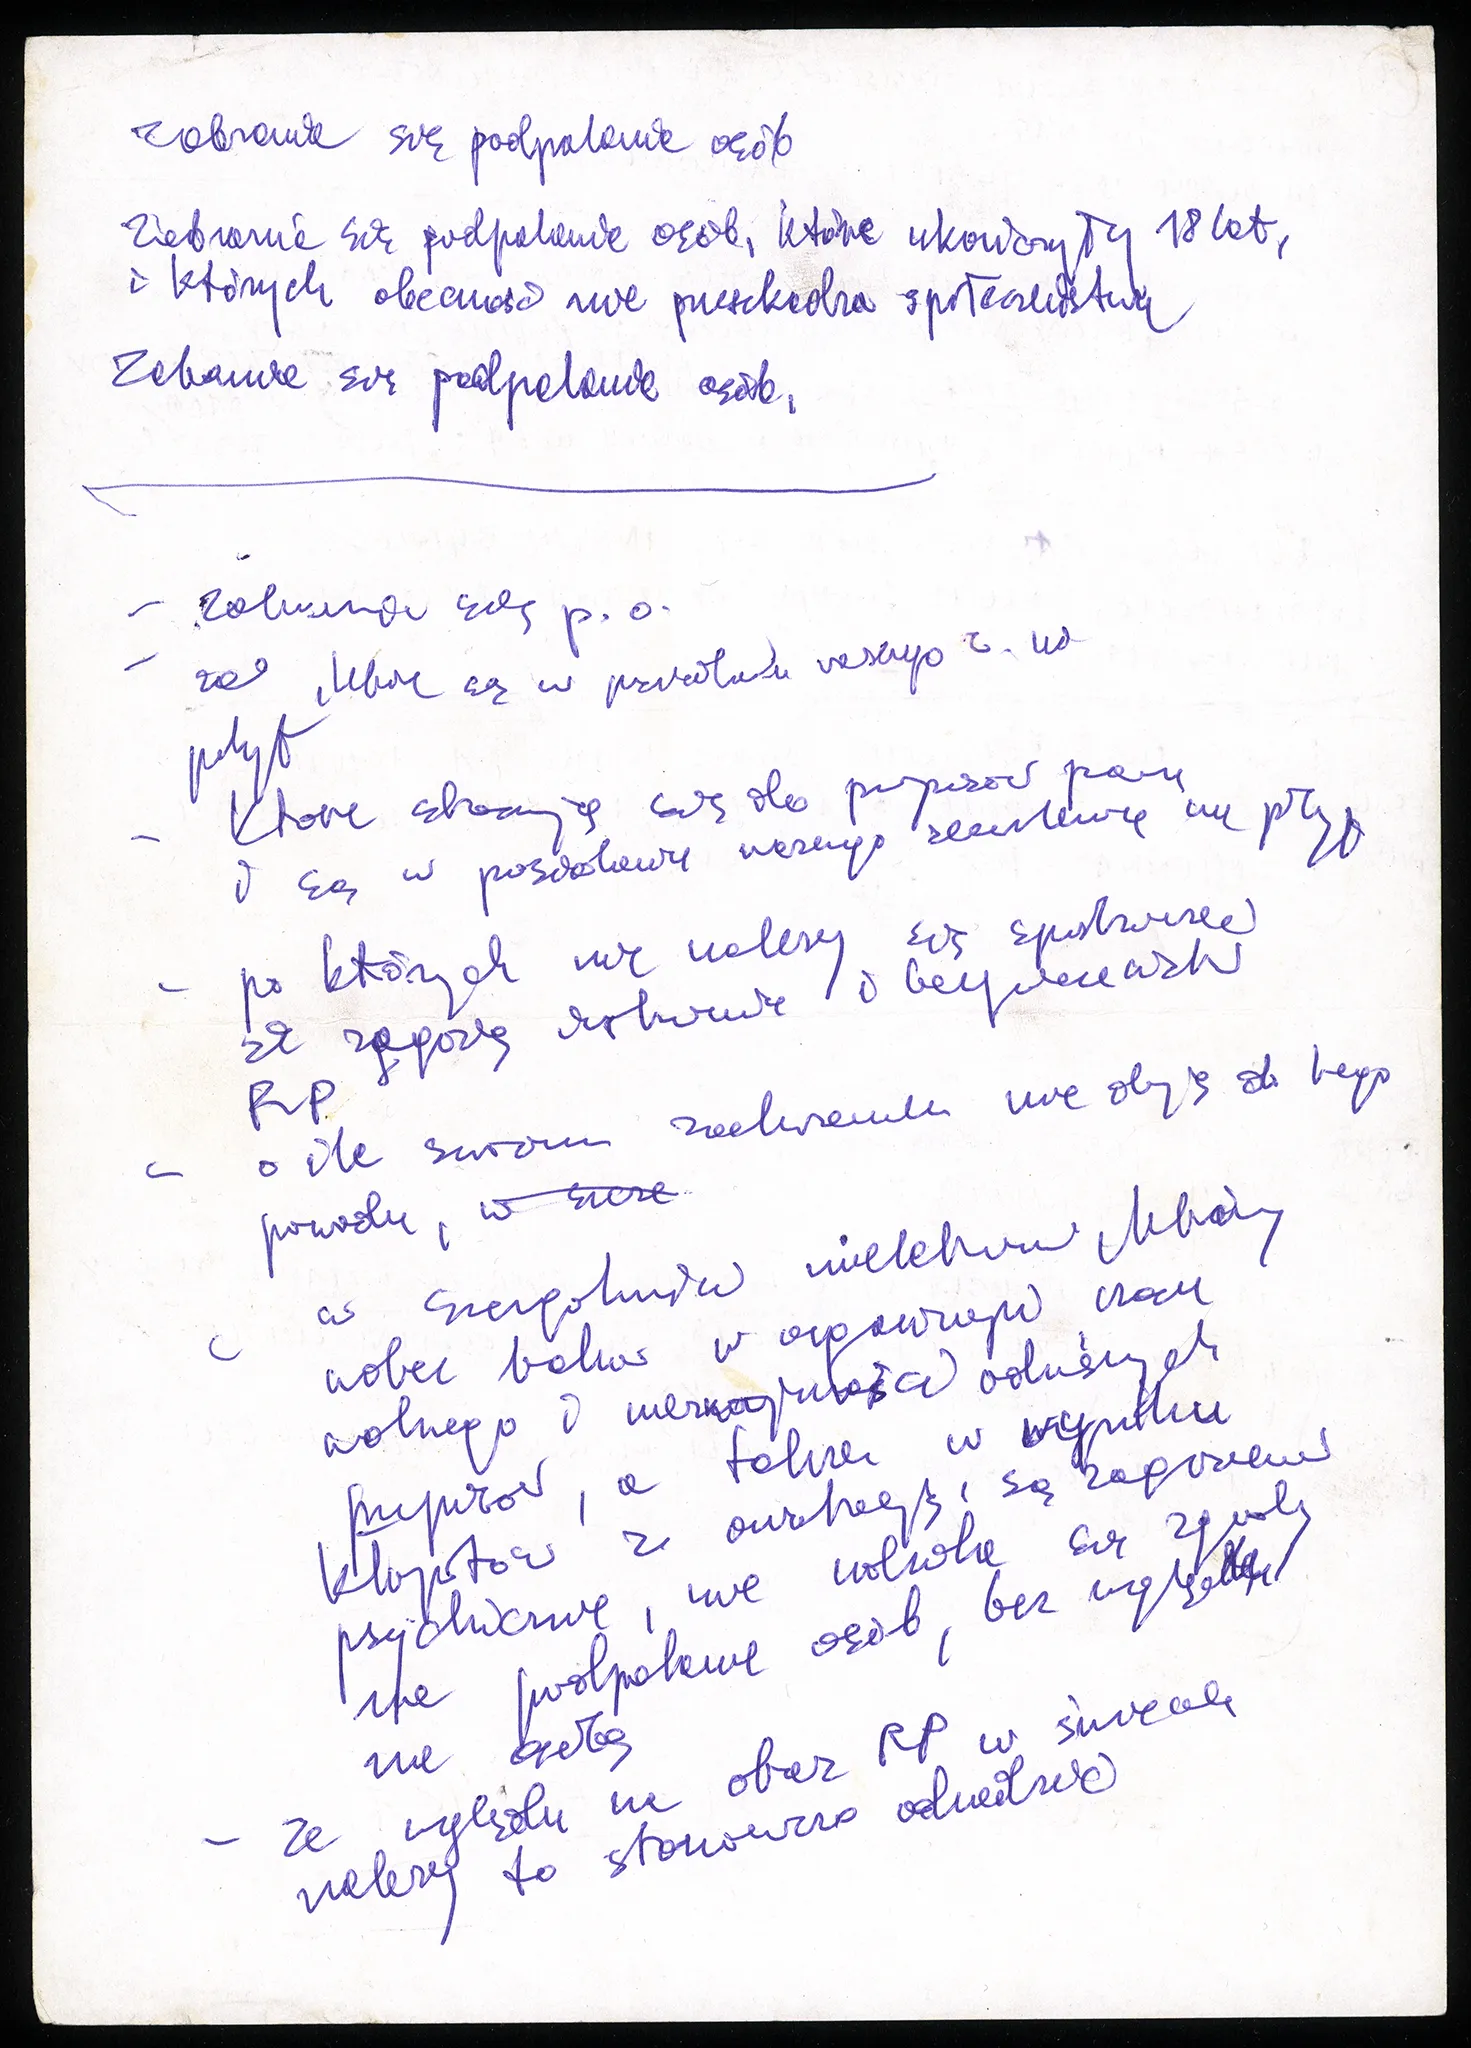 Zabrania się podpalanie osób
Zabrania się podpalanie osób, które ukończyły 18 lat,
i których obecność nie przeszkadza społeczeństwu
Zabrania się podpalanie osób,
- Zabrania się p. o.
- które są w posiadaniu ważnego z. na
pobyt
- Które stosują się do przepisów prawa
i są w posiadaniu ważnego zezwolenia na pobyt
- po których nie należy się spodziewać
że zagrożą zdrowiu i bezpieczeństwu
RP
- o ile swoim zachowaniem nie dają do tego
powodu, w
- w szczególności nieletnim, którzy
wobec braku w organizacji czasu
wolnego i nieznajomości odnośnych
przepisów, a także w wyniku
kłopotów z są zagrożeni
psychicznie, nie udziela się zgody
na podpalanie osób, bez względu
na osobę
- Ze względu na obraz RP w świecie
należy to stanowczo odradzać